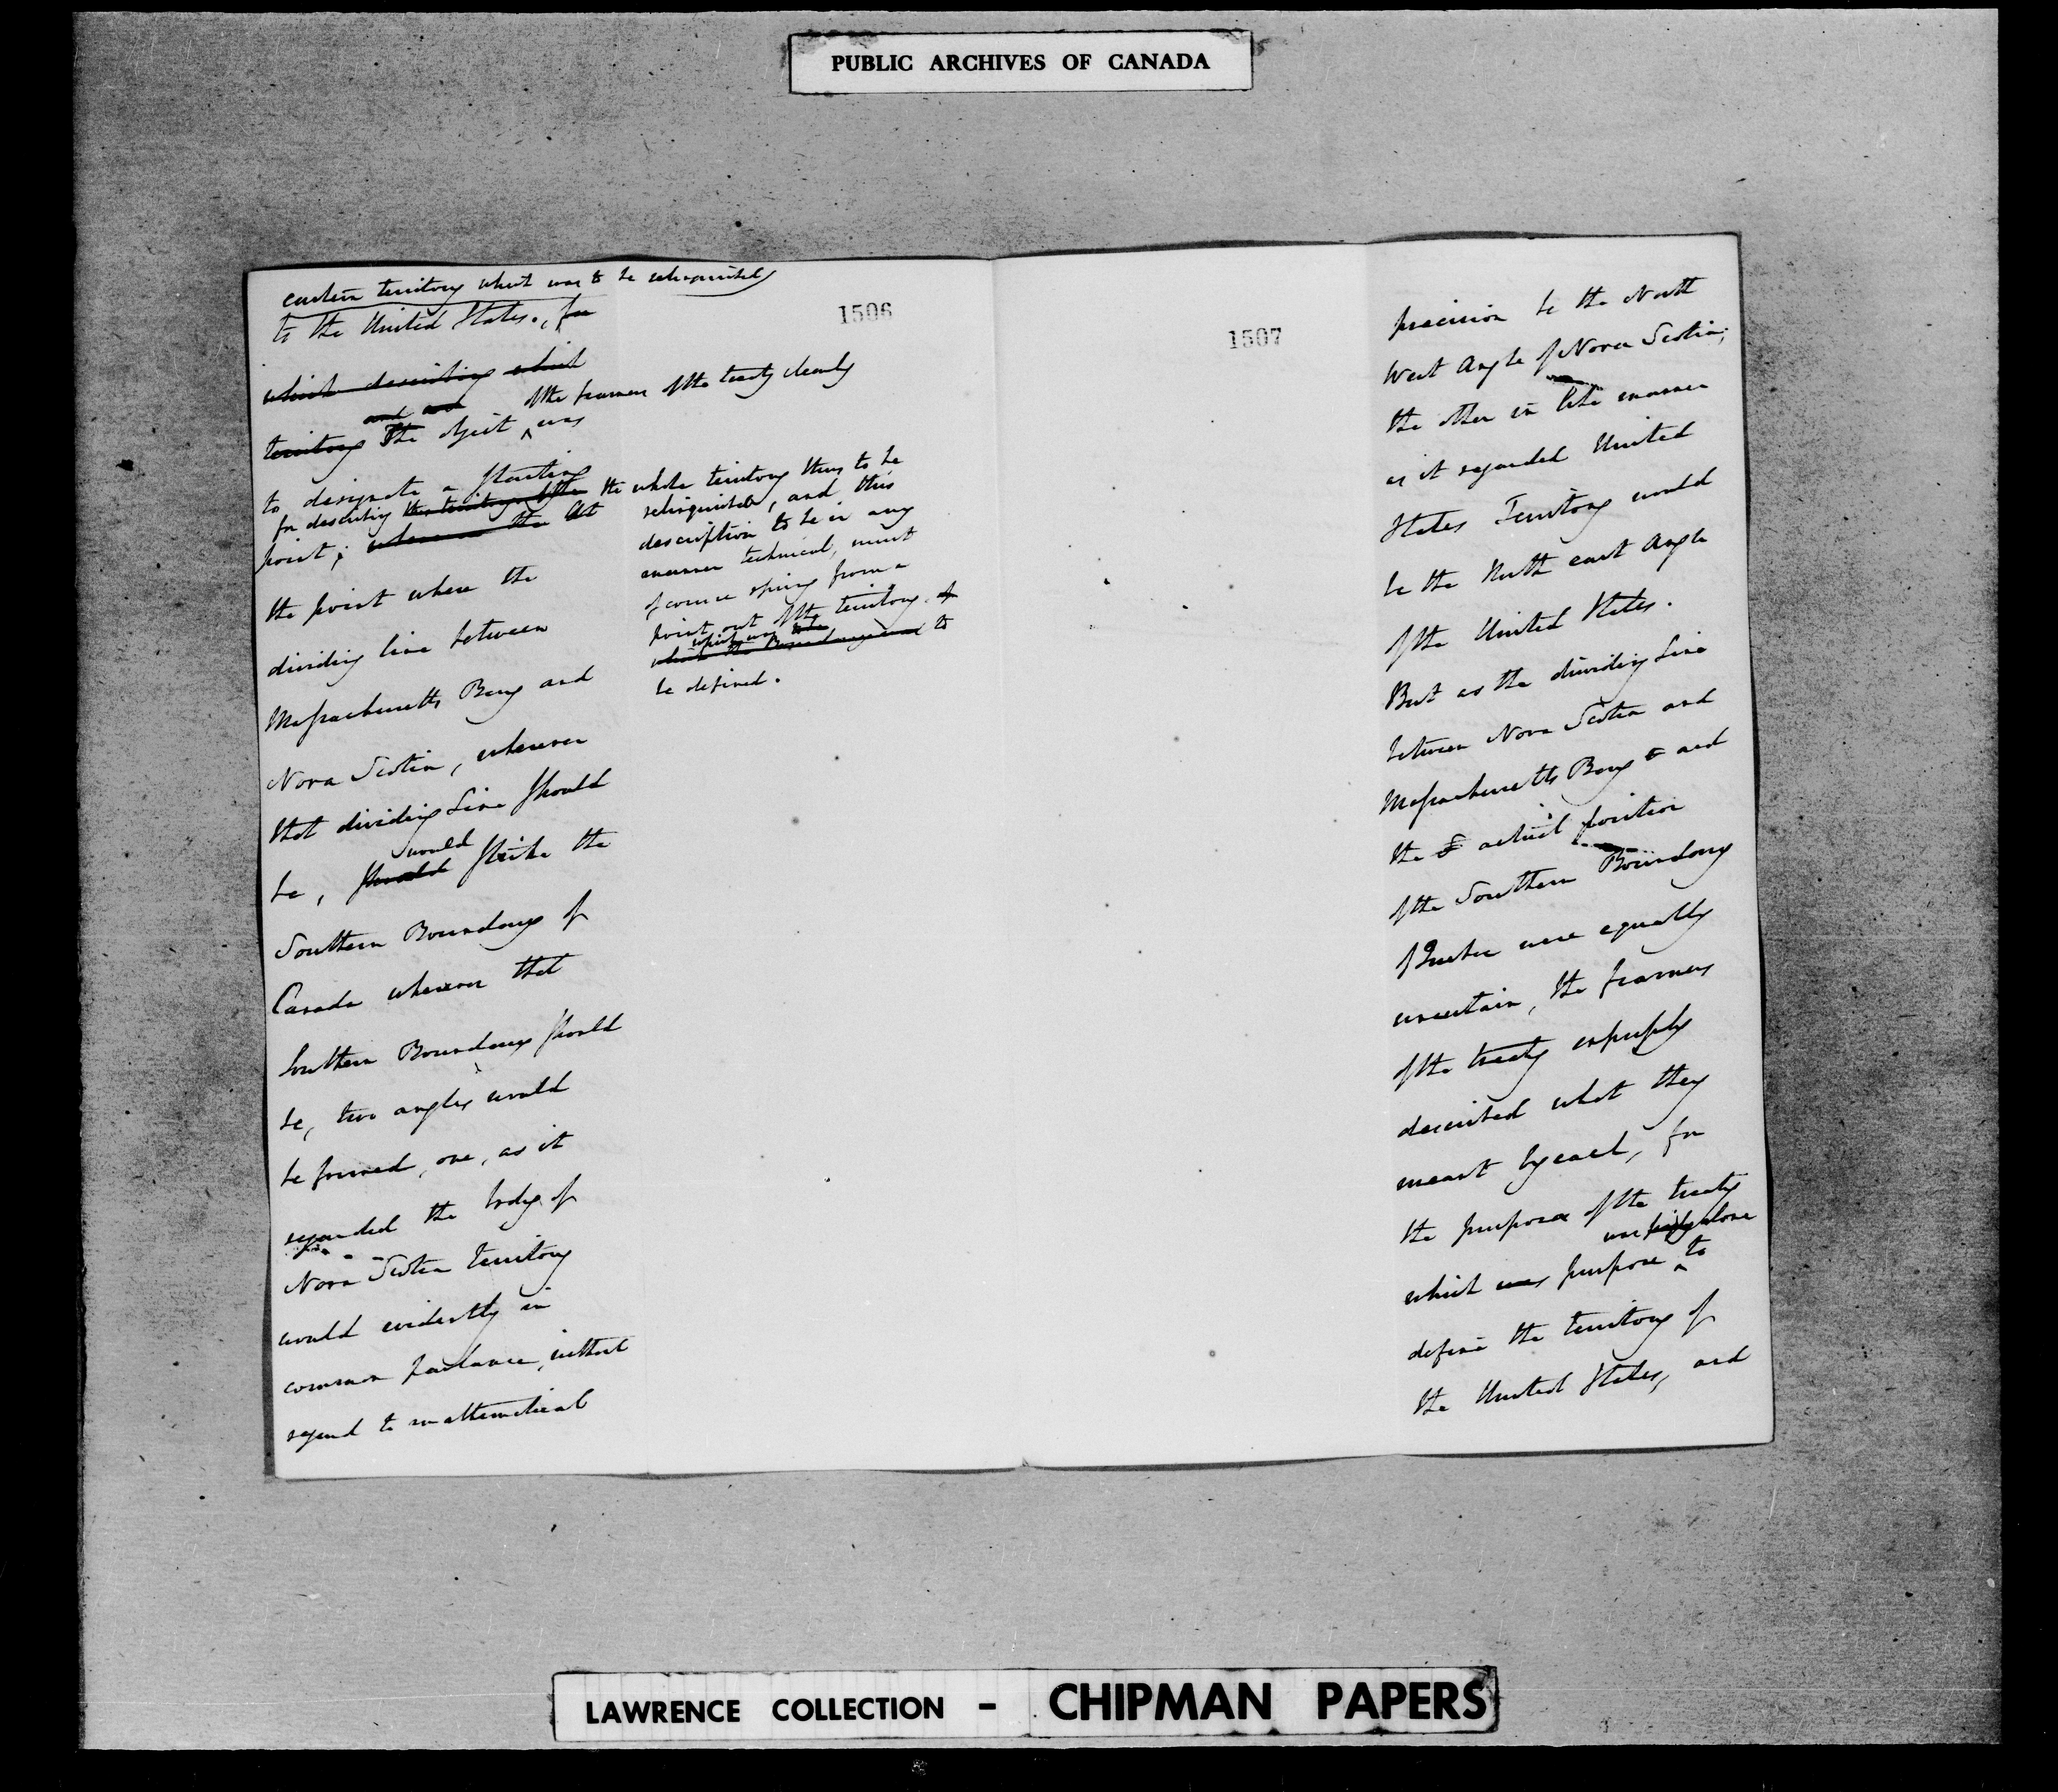 PUBLIC ARCHIVES OF CANADA
1506
eastern territory which was to be relinquished
to the United States., for
which describing which
and and
territory The object was
of the framers of the treaty clearly
to designate a starting
for describing the territory of the the whole territory thus to be
point; whereon the At
relinquished, and this
description to be in any
manner technical, must
of course spring from a
point out of the territory of
which was to be
which the Boundary was to
be defined.
the point where the
dividing line between
Massachusetts Bay and
Nova Scotia, wherever
that dividing Line should
would
be, should strike the
Southern Boundary of
Canada wherever that
Southern Boundary should
be, two angles would
be formed, one, as it
regarded the body of
Nova Scotia territory
would evidently in
common parlance, without
regard to mathematical
1507
precision be the North
West Angle of Nova Scotia;
the other in like manner
as it regarded United
States Territory would
be the North east Angle
of the United States.
But as the dividing Line
between Nova Scotia and
Massachusetts Bay & and
the actual position
of the Southern Boundary
of Quebec were equally
uncertain, the framers
of the treaty expressly
described what they
meant by each, for
the purpose of the treaty
was alone
which was purpose to
define the territory of
the United States, and
LAWRENCE COLLECTION - CHIPMAN PAPERS